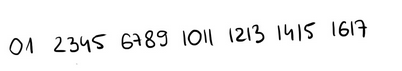 01 2345 6789 1011 1213 1415 1617